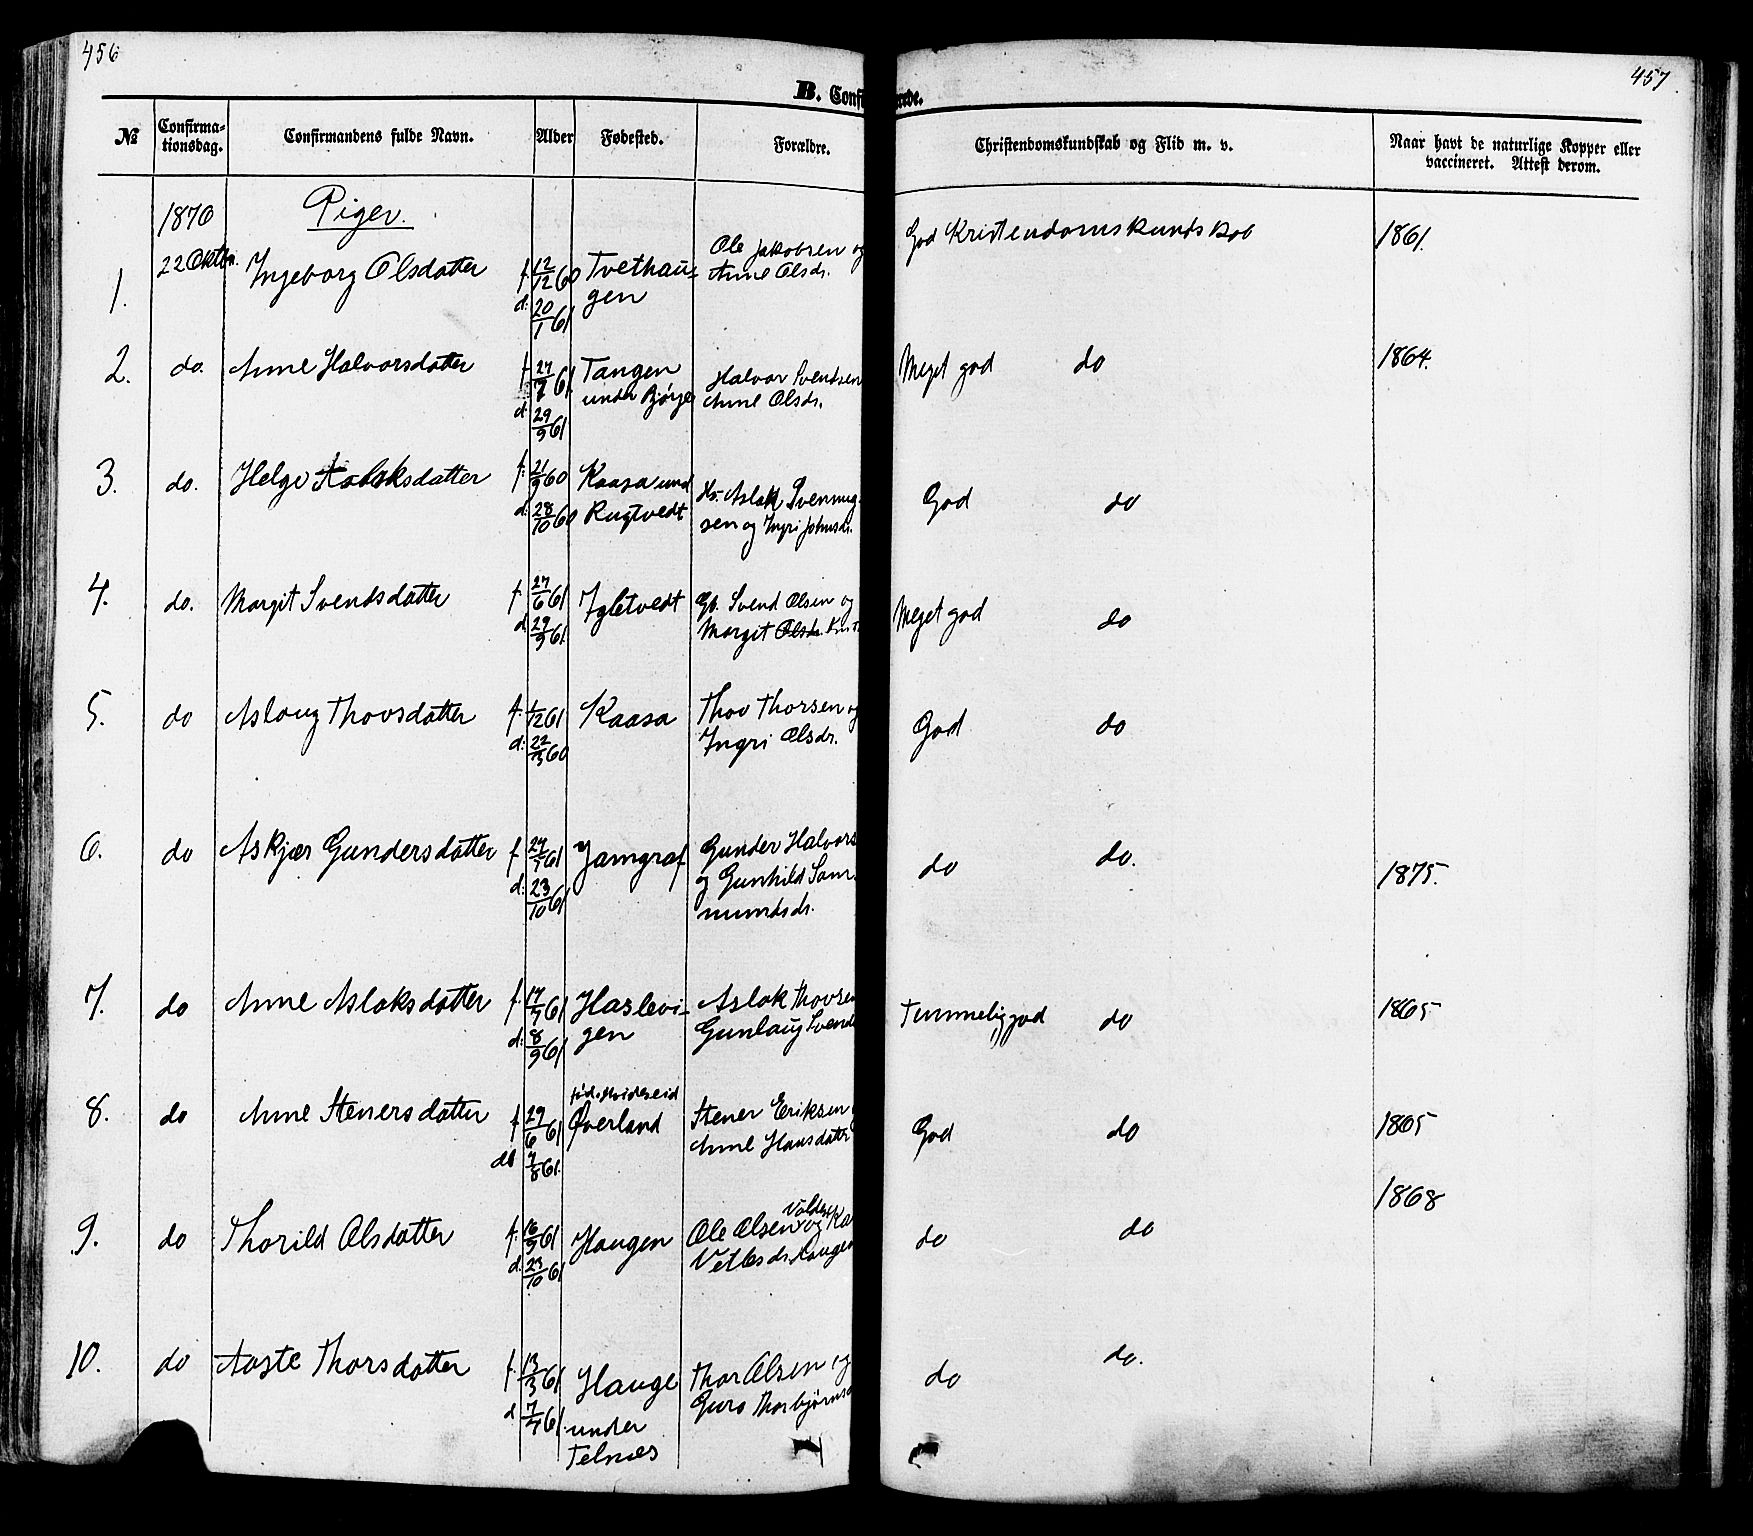 456
457
B. Conf
nde.
№
Confirma-
tionsdag.
Confirmandens fulde Navn.
Alder
Fødested.
Forældre.
Christendomskundskab og Flid m. v.
Naar havt de naturlige Kopper eller
vaccineret. Attest derom.
Piger.
1.
1876
22 Oktbr.
Ingeborg Olsdatter
f. 12/12 60
d: 20/1 61
Tvethau-
gen
Ole Jakobsen og
Anne Olsdr.
God Kristendomskundskab
1861.
2.
do.
Anne Halvorsdatter
f. 27/7 61
d. 29/9 61
Tangen
under Bjørge
Halvor Svendsen
Anne Olsdr.
Meget god do
1864.
3.
do.
Helge Aslaksdatter
f: 21/9 60
d. 28/10 60
Kaasa und
Rugtvedt
Aslak Svennug-
sen og Ingri Johnsdr.
God do
4.
do.
Margit Svendsdatter
f. 27/6 61
d. 29/9 61
Igletvedt
Gb. Svend Olsen og
Margit Olsdr.
Meget god do
5.
do
Aslaug Thovsdatter
f. 1/12 61
d: 22/3 60
Kaasa
Thov Thorsen og
Ingri Olsdr.
God do
6.
do
Askjær Gundersdatter
f. 29/7 61
d: 23/10 61
Jamgraf
Gunder Halvors
og Gunhild Sam-
mundsdr.
do do.
1875.
7.
do
Anne Aslaksdatter
f. 17/7 61
d: 8/9 61
Haslevi-
gen
Aslak Thovsen
Gunlaug Svends
Temmelig god do
1865
8.
do
Anne Stenersdatter
f. 29/6 61
db 4/8 61.
fød i Hvideseid
Øverland
Stener Eriksen
Anne Hansdattr
God do
1865
9.
do
Thorild Olsdatter
f. 16/9 61
d. 23/10 61
Haugen
Ole Olsen og Ka
Vetlesdr. Haugen
do do
1868
10.
do
Aaste Thorsdatter
f. 13/3 61
d 7/4 61.
Hauge
under
Telnæs
Thor Olsen og
Guro Thorbjørnsd
do do.